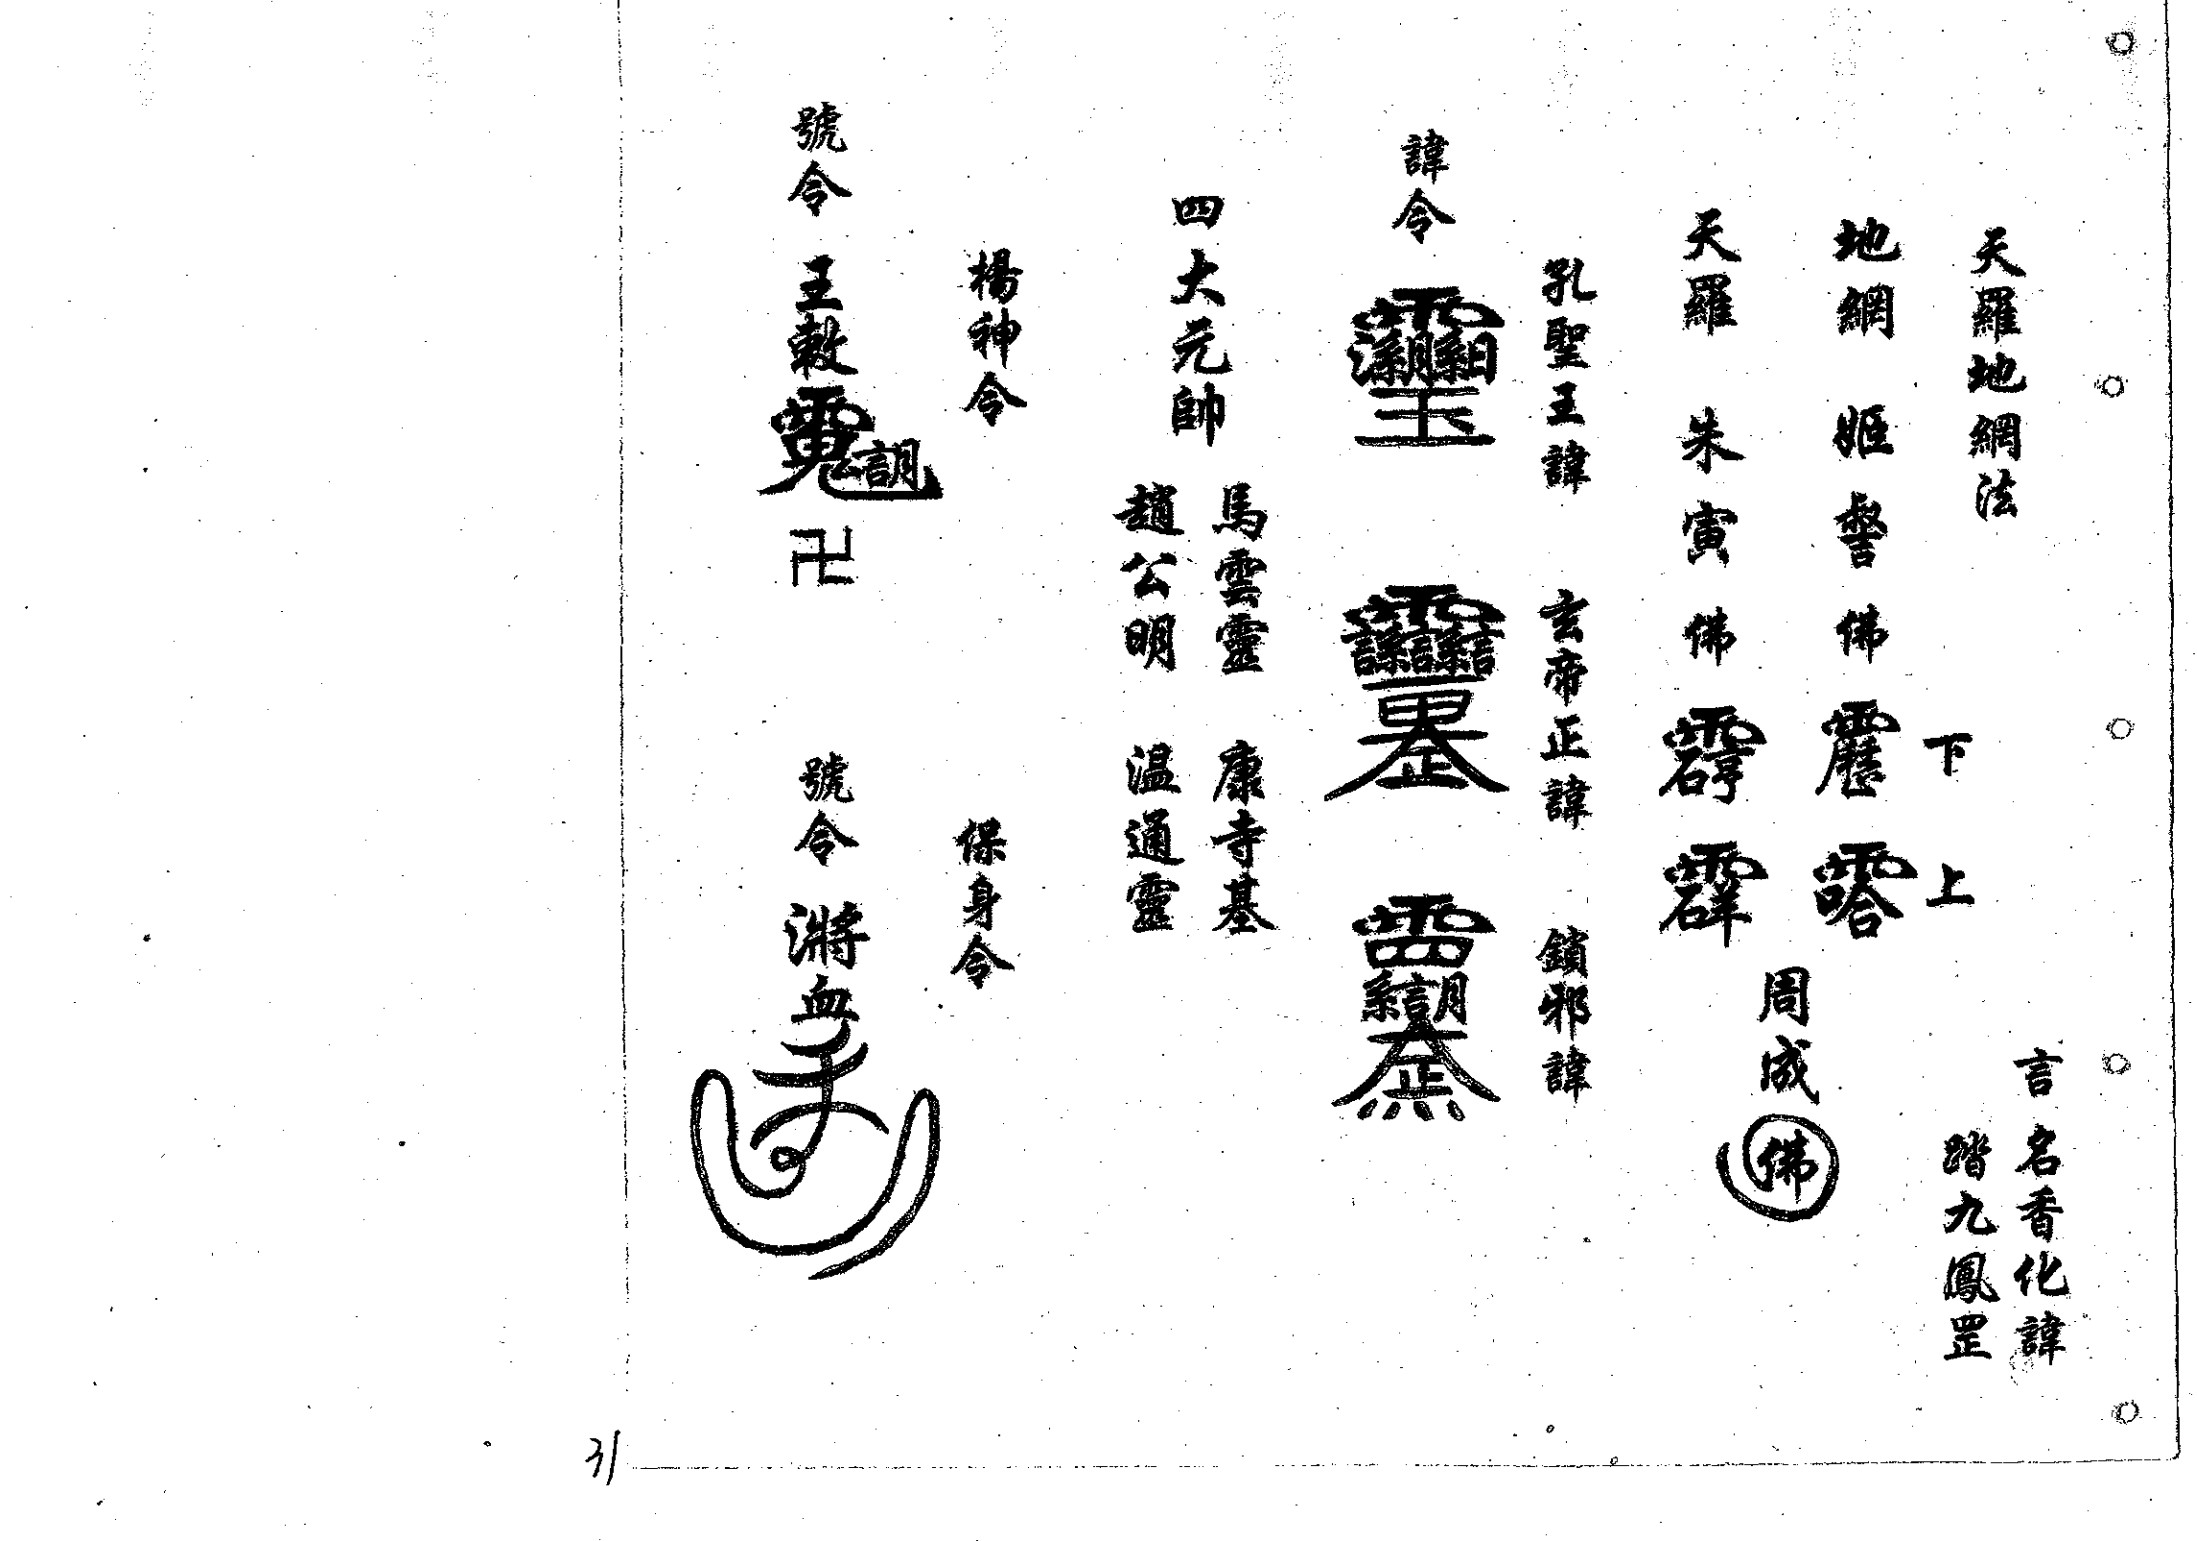 天羅地網法
言名香化諱
踏九鳳罡
下
上
地網 姫 詧 佛
天羅 朱寅佛
周成佛
孔聖王諱 玄帝正諱 鎖邪諱
諱令
四大元帥
馬雲靈 康寺基
趙公明 温通靈
楊神令 保身令
號令 王敕
卍
號令
血
31